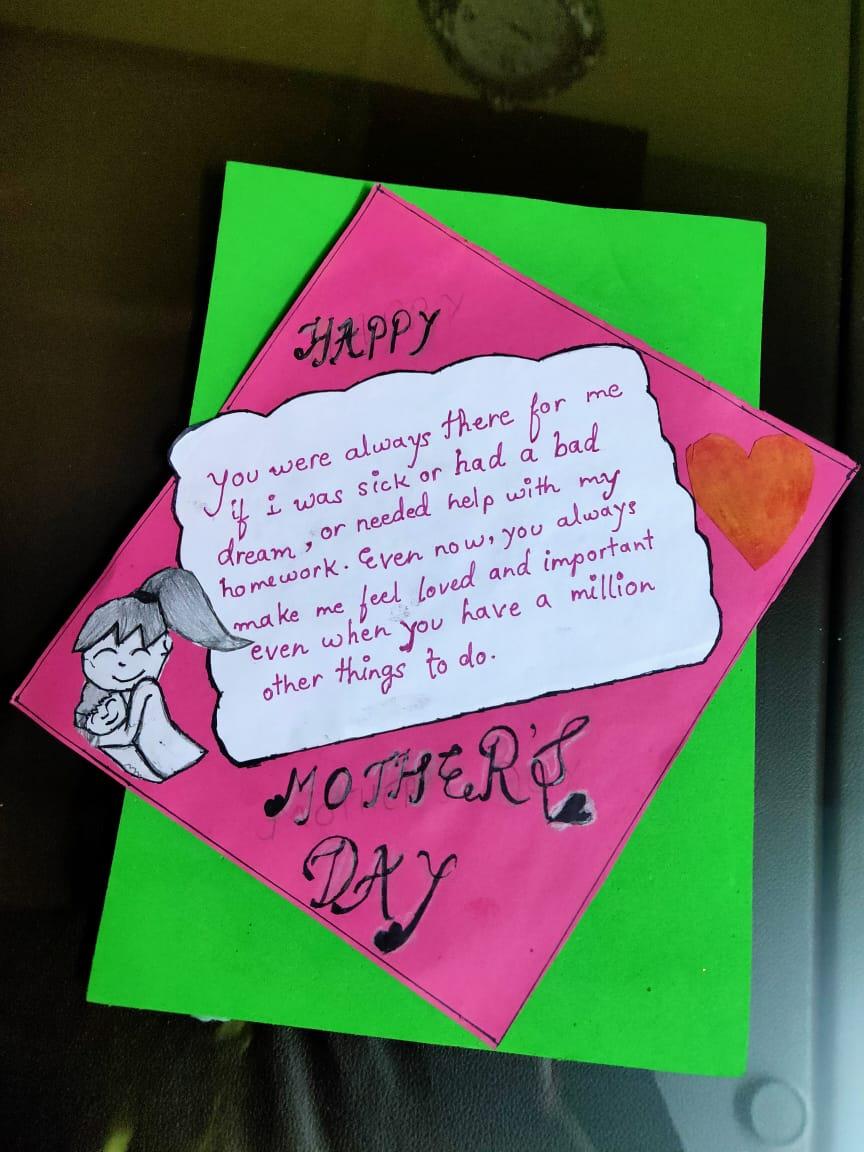 HAPPY
You were always there for me
if i was sick or had a bad
dream, or needed help with my
homework. Even now, you always
make me feel loved and important
even when you have a million
other things to do.
MOTHER'S
DAY